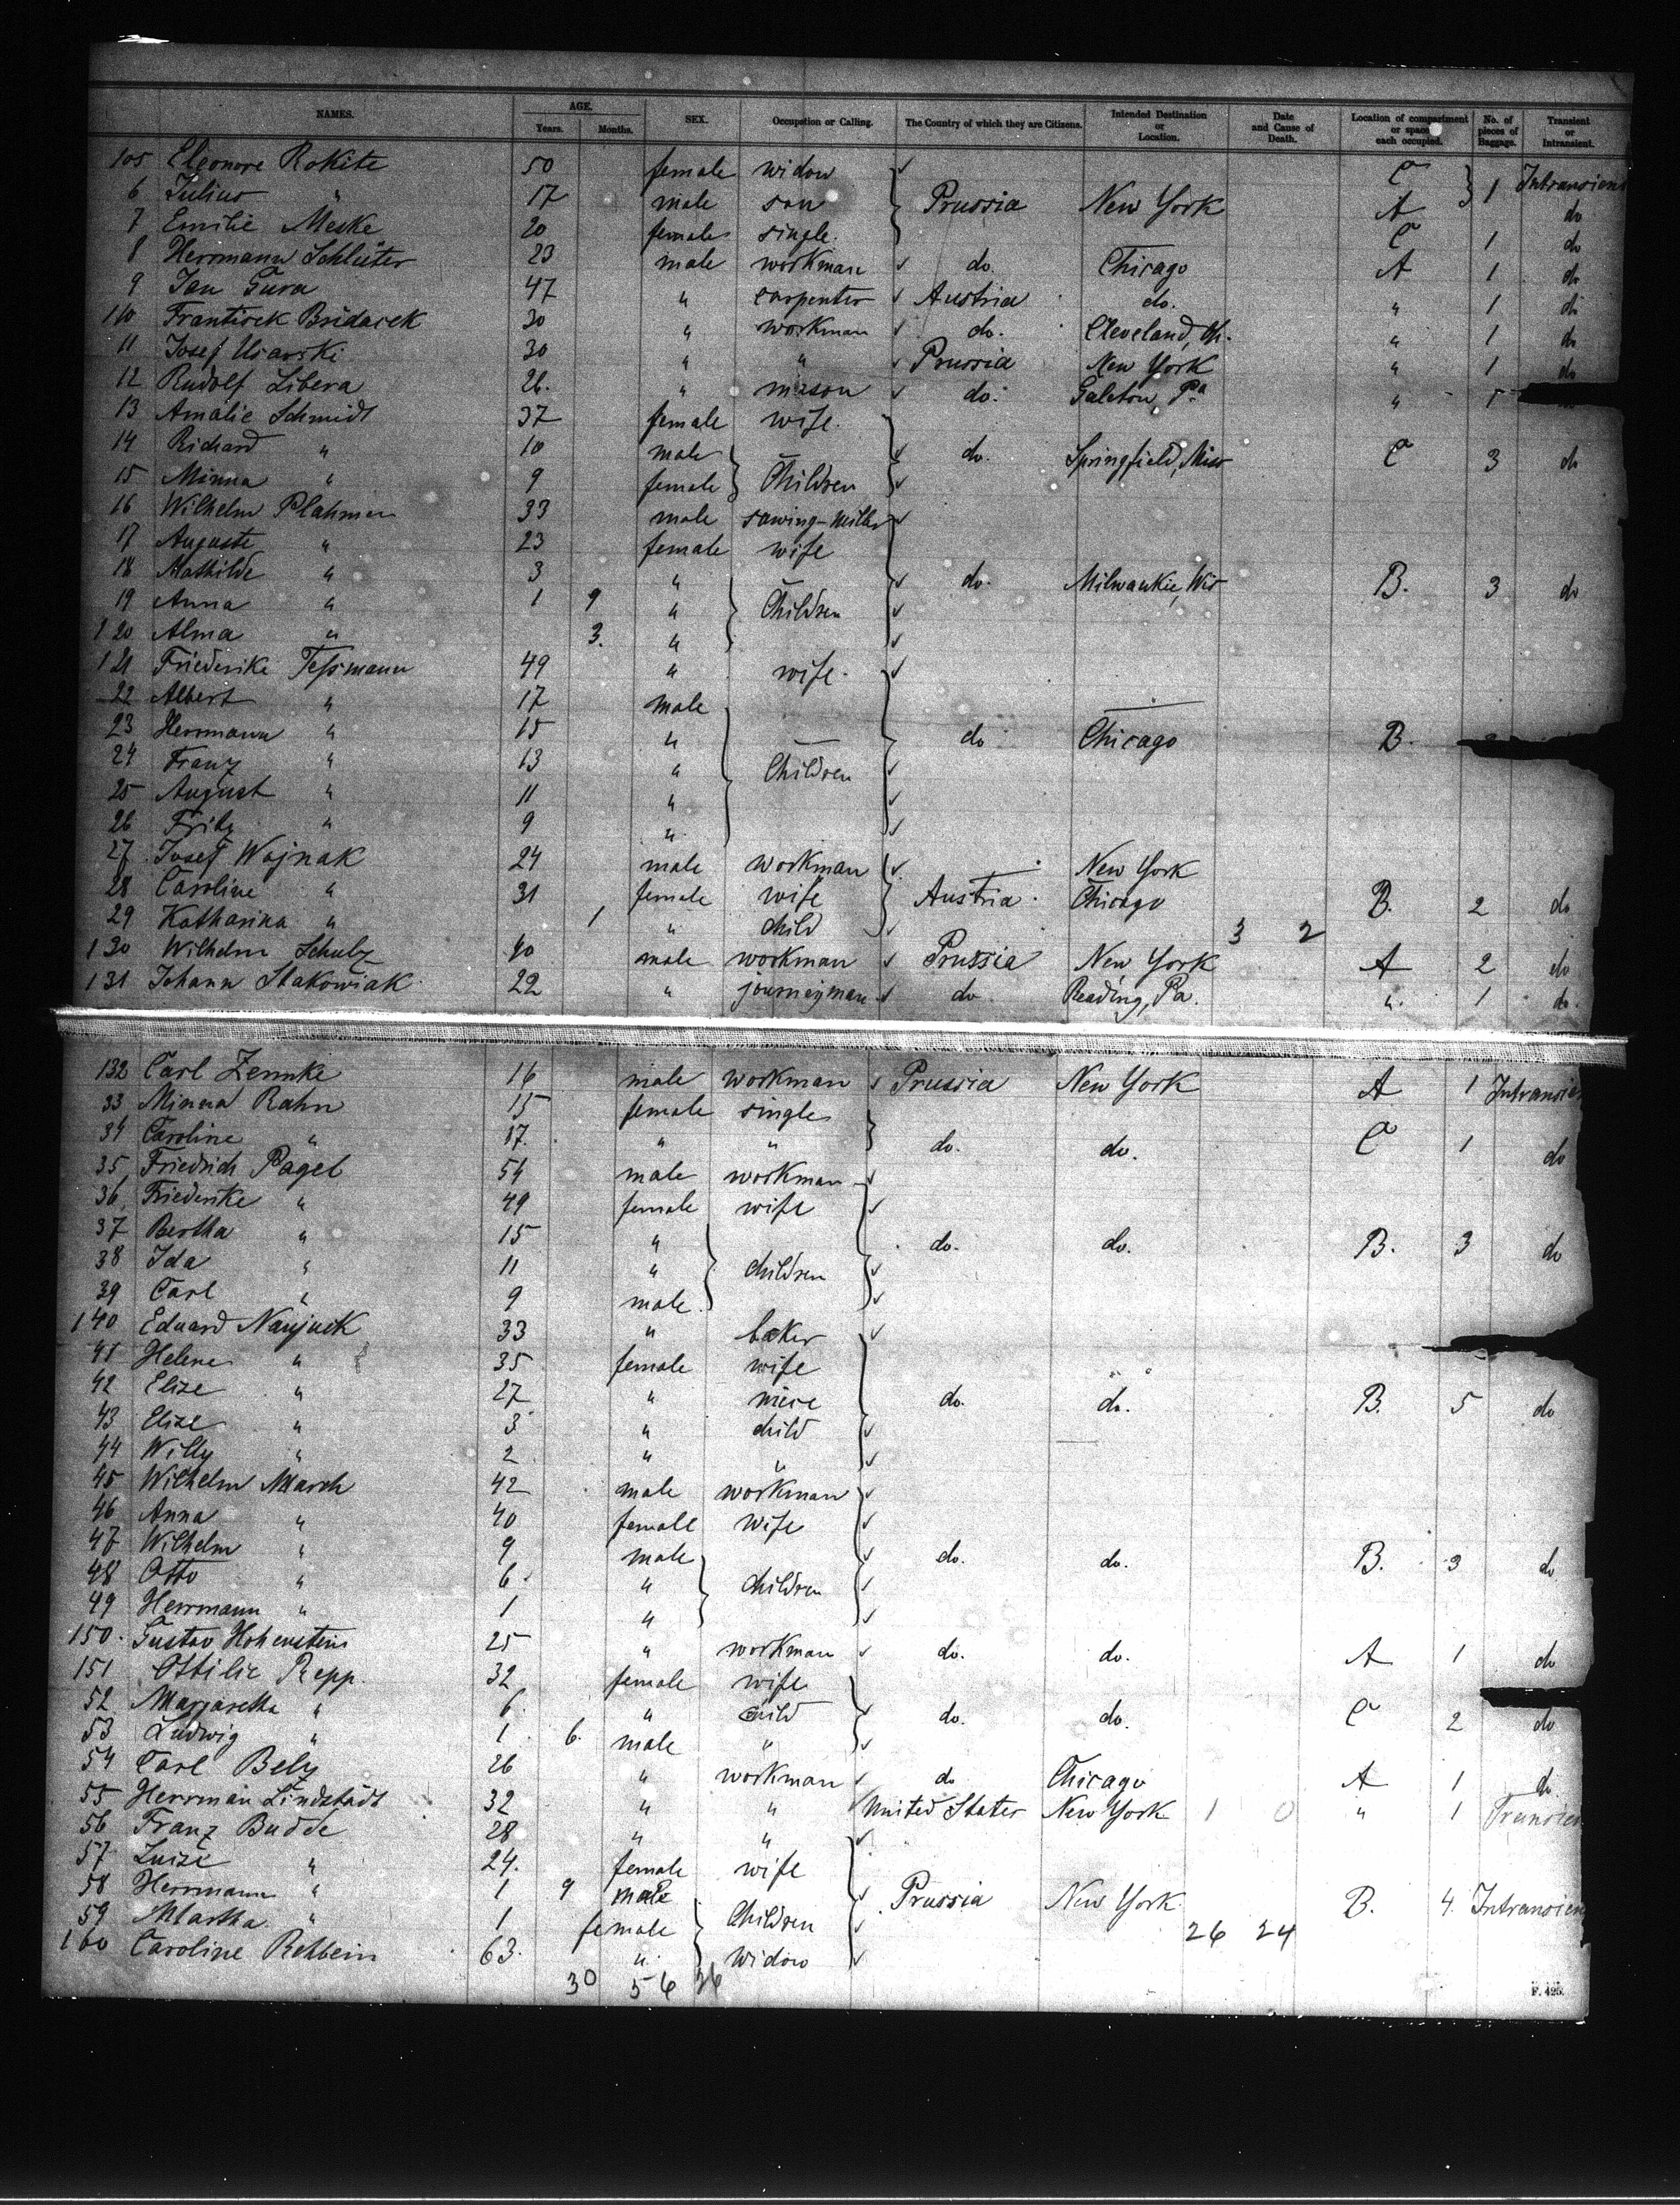 NAMES. AGE. Years. Months. SEX. Occupation or Calling. The Country of which they are Citizens. Intended Destination or Location. Date and Cause of Death. Location of compartment or space each occupied. No. of pieces of Baggage. Transient or Intransient.
105 Eleonore Rokite 50 female widow C
6 Julius " 17 male son Prussia New York A 1 Intransient
7 Emilie Meske 20 female single C 1 do
8 Herrmann Schlüter 23 male workman do. Chicago A 1 do
9 Jan Gura 47 " carpenter Austria do. " 1 do
110 Frantisek Bridasek 30 " workman do. Cleveland, Oh. " 1 do
11 Josef Usarski 30 " " Prussia New York " 1 do
12 Rudolf Libera 26. " mason do. Galeton, Pa " 1
13 Amalie Schmidt 37 female wife
14 Richard " 10 male do. Springfield, Miss C 3 do
15 Minna " 9 female Children
16 Wilhelm Plahmer 33 male sawing-miller
17 Auguste " 23 female wife
18 Mathilde " 3 " do. Milwaukie, Wis B. 3 do
19 Anna " 1 9 " Children
120 Alma " 3. "
121 Friederike Teſsmann 49 " wife
22 Albert " 17 male
23 Herrmann " 15 " do Chicago B.
24 Franz " 13 " Children
25 August " 11 "
26 Fritz " 9 "
27 Josef Wojnak 24 male workman New York
28 Caroline " 31 female wife Austria Chicago B. 2 do
29 Katharina " 1 " child 3 2
130 Wilhelm Schulz 40 male workman Prussia New York A 2 do
131 Johann Stakowiak 22 " journeyman do Reading, Pa. " 1 do.
132 Carl Zemke 16 male workman Prussia New York A 1 Intransien
33 Minna Rahn 15 female single
34 Caroline " 17. " " do. do. C 1 do
35 Friedrich Pagel 54 male workman
36 Friederike " 49 female wife
37 Bertha " 15 " do. do. B. 3 do
38 Ida " 11 " children
39 Carl " 9 male
140 Eduard Naujuck 33 " baker
41 Helene " 35 female wife
42 Elize " 27 " niece do. do. B. 5 do
43 Elise " 3 " child
44 Willy " 2 " "
45 Wilhelm March 42 male workman
46 Anna " 40 female wife
47 Wilhelm " 9 male do. do. B. 3 do
48 Otto " 6 " children
49 Herrmann " 1 "
150. Gustav Hohenstein 25 " workman do. do. A 1 do
151 Ottilie Repp. 32 female wife
52 Margaretha " 6 " child do. do. C 2 do
53 Ludwig " 1 6. male "
54 Carl Belz 26 " workman do Chicago A 1 do
55 Herrman Lindstädt 32 " " United States New York 1 0 " 1 Transien
56 Franz Budde 28 " "
57 Luize " 24. female wife
58 Herrmann " 1 9 male Prussia New York B. 4. Intransien
59 Martha " 1 female Children 26 24
160 Caroline Rehbein 63. " Widow
30 56 26
F. 425.